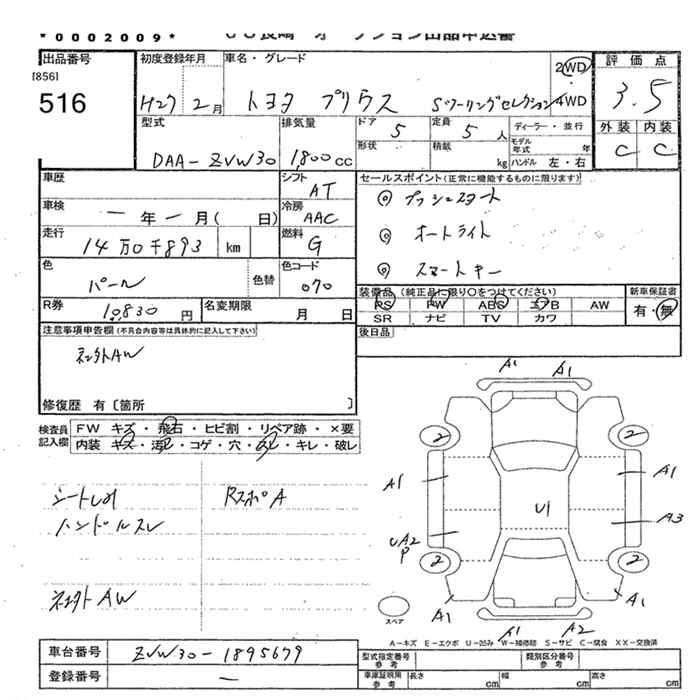 *0002009*
ション出品申込書
出品番号
[856]
516
初度登録年月
H27 2月
車名・グレード
トヨタ プリウス Sツーリングセレクション
2WD
4WD
評価点
3.5
外装 内装
C C
型式
DAA-ZVW30
排気量
1,800cc
ドア 5
定員 5人
形状
積載 kg
ディーラー・並行
モデル年式 年
ハンドル 左・右
車歴
シフト AT
車検 一年一月( 日)
冷房 AAC
走行 14万0千893 km
燃料 G
色 パール
色替
色コード 070
R券 10,830円
名変期限 月 日
セールスポイント(正常に機能するものに限ります)
◎ プッシュスタート
◎ オートライト
◎ スマートキー
装備品(純正品に限り○をつけてください)
RS PW ABS エアB AW
SR ナビ TV カワ
新車保証書
有・無
後日品
注意事項申告欄(不具合内容等は具体的に記入して下さい)
AW
修復歴 有〔箇所 〕
検査員記入欄
FW キズ・飛石・ヒビ割・リペア跡・×要
内装 キズ・汚レ・コゲ・穴・スレ・キレ・破レ
RスポA
ハンドルスレ
AW
A1 A1
2 2
A1 A1
U1
A3
UA2
P
2 2
A1 A1
A1 A2
スペア
A-キズ E-エクボ U-凹み W-補修跡 S-サビ C-腐食 XX-交換済
車台番号 ZVW30-1895679
登録番号 一
型式指定番号 参考
類別区分番号 参考
車庫証明用 参考 長さ cm 幅 cm 高さ cm